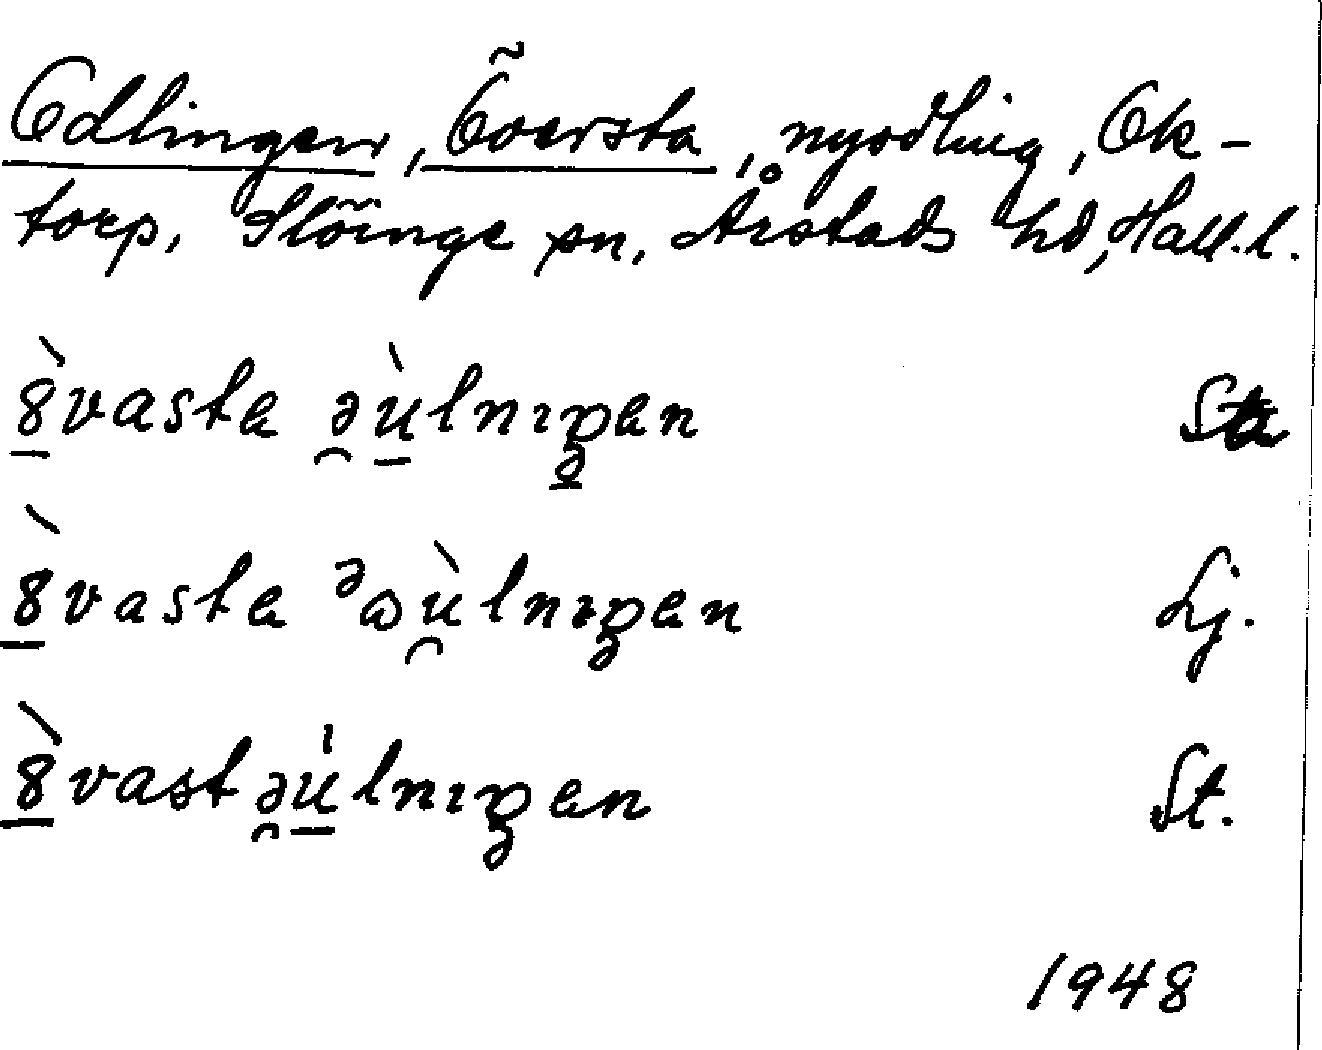 Odlingen, Öoversta, nyodling, Ok-
torp, Slöinge sn, Årstads hd, Hall.l.
8̲̀vasta ə̯ù̲lnıŋen Sta
8̲̀vasta ᵊωù̯lnıŋen Lj.
8̲̀vastə̯ù̲lnıŋen St.
1948